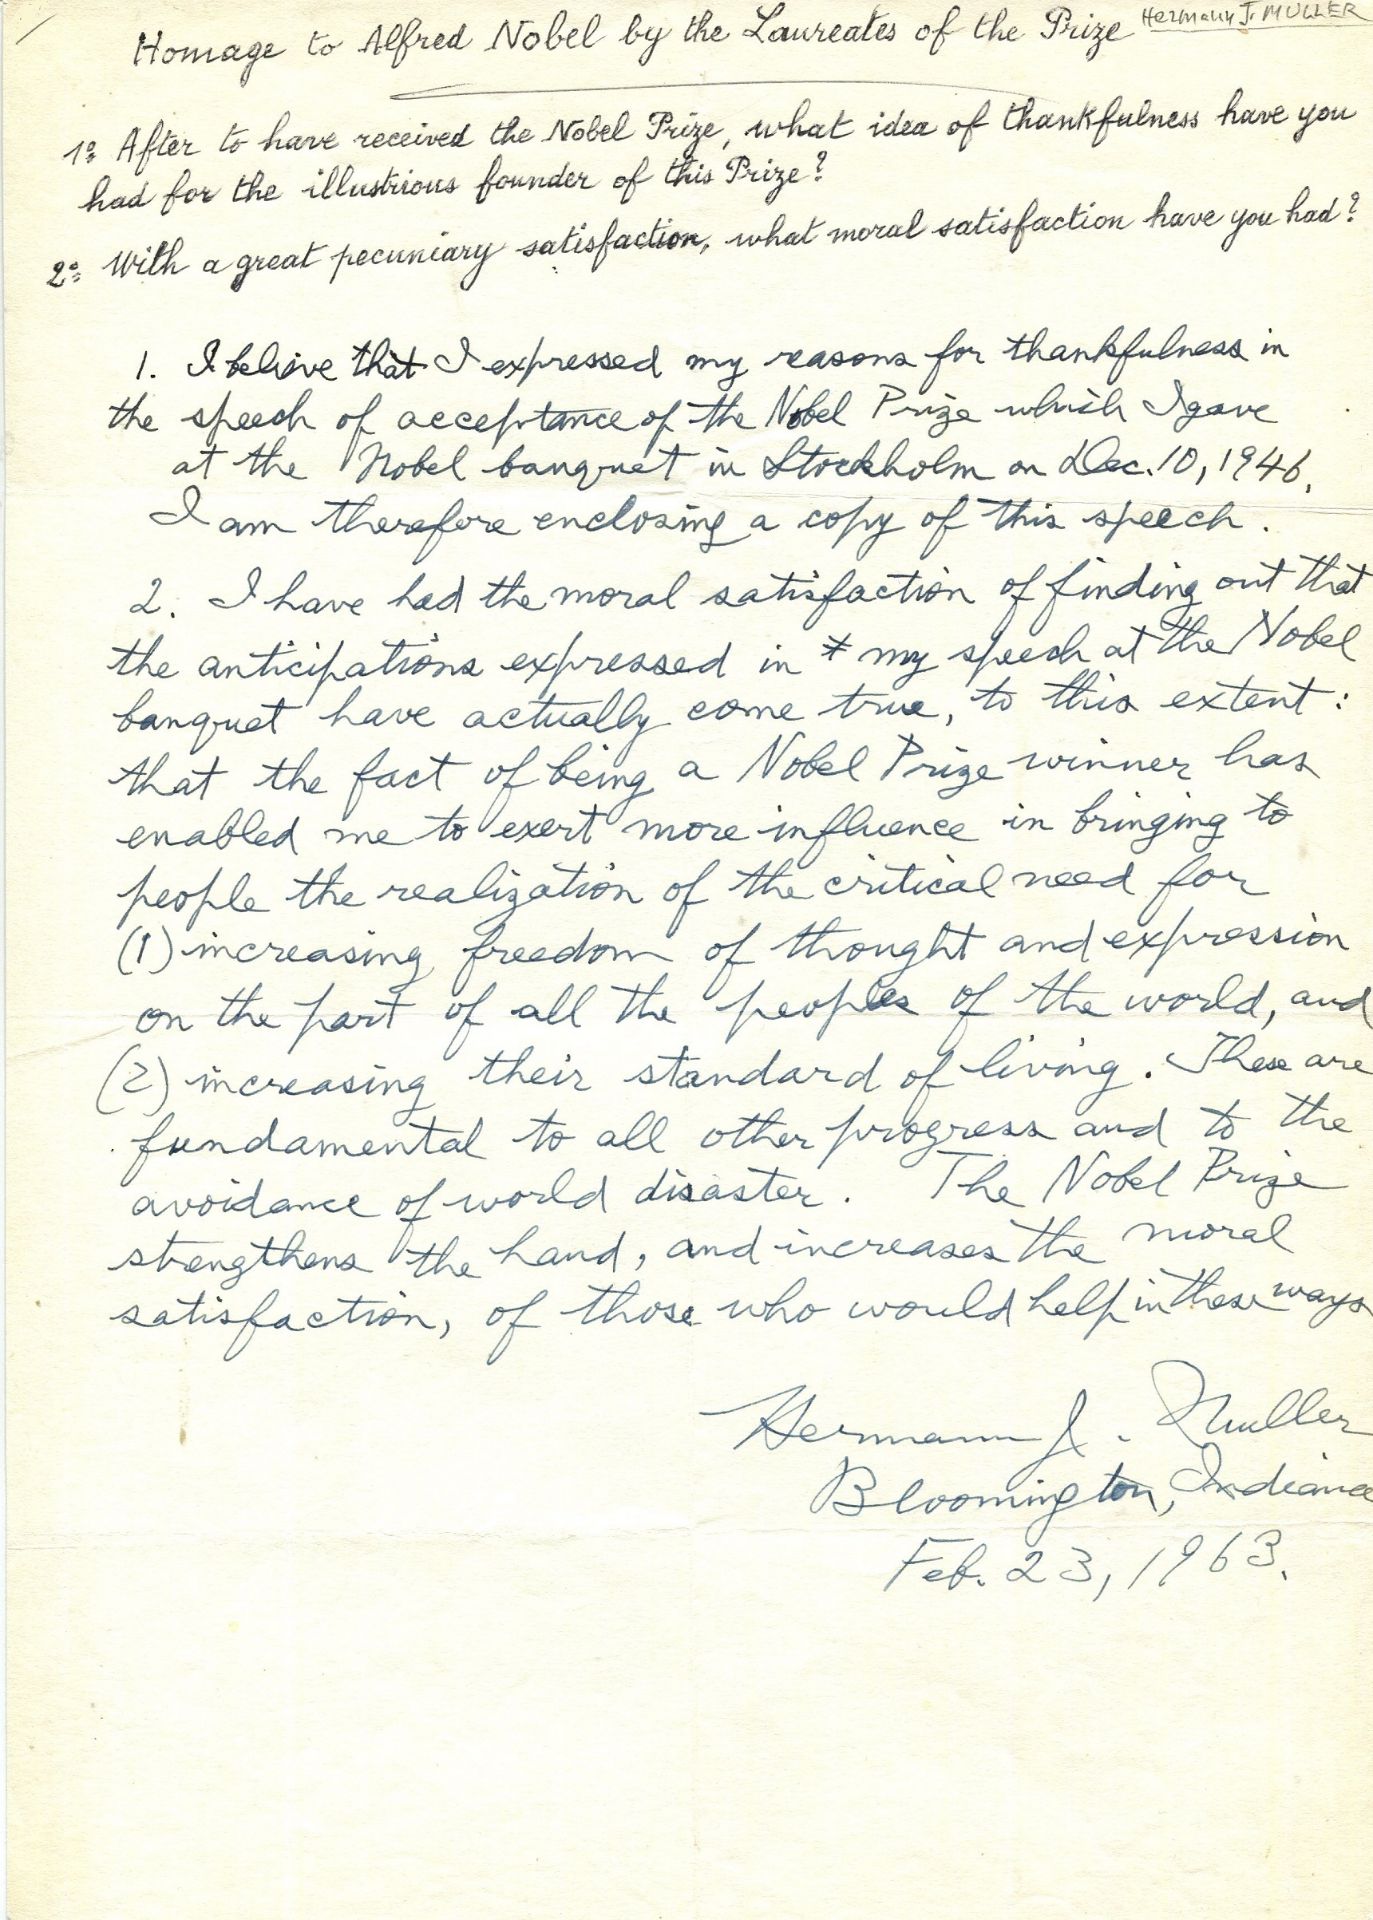 Hermann J. MULLER
Homage to Alfred Nobel by the Laureates of the Prize
1º: After to have received the Nobel Prize, what idea of thankfulness have you
had for the illustrious founder of this Prize?
2º: With a great pecuniary satisfaction, what moral satisfaction have you had?
1. I believe that I expressed my reasons for thankfulness in
the speech of acceptance of the Nobel Prize which I gave
at the Nobel banquet in Stockholm on Dec. 10, 1946.
I am therefore enclosing a copy of this speech.
2. I have had the moral satisfaction of finding out that
the anticipations expressed in my speech at the Nobel
banquet have actually come true, to this extent:
that the fact of being a Nobel Prize winner has
enabled me to exert more influence in bringing to
people the realization of the critical need for
(1) increasing freedom of thought and expression
on the part of all the peoples of the world, and
(2) increasing their standard of living. These are
fundamental to all other progress and to the
avoidance of world disaster. The Nobel Prize
strengthens the hand, and increases the moral
satisfaction, of those who would help in these ways
Hermann J. Muller
Bloomington, Indiana
Feb. 23, 1963.